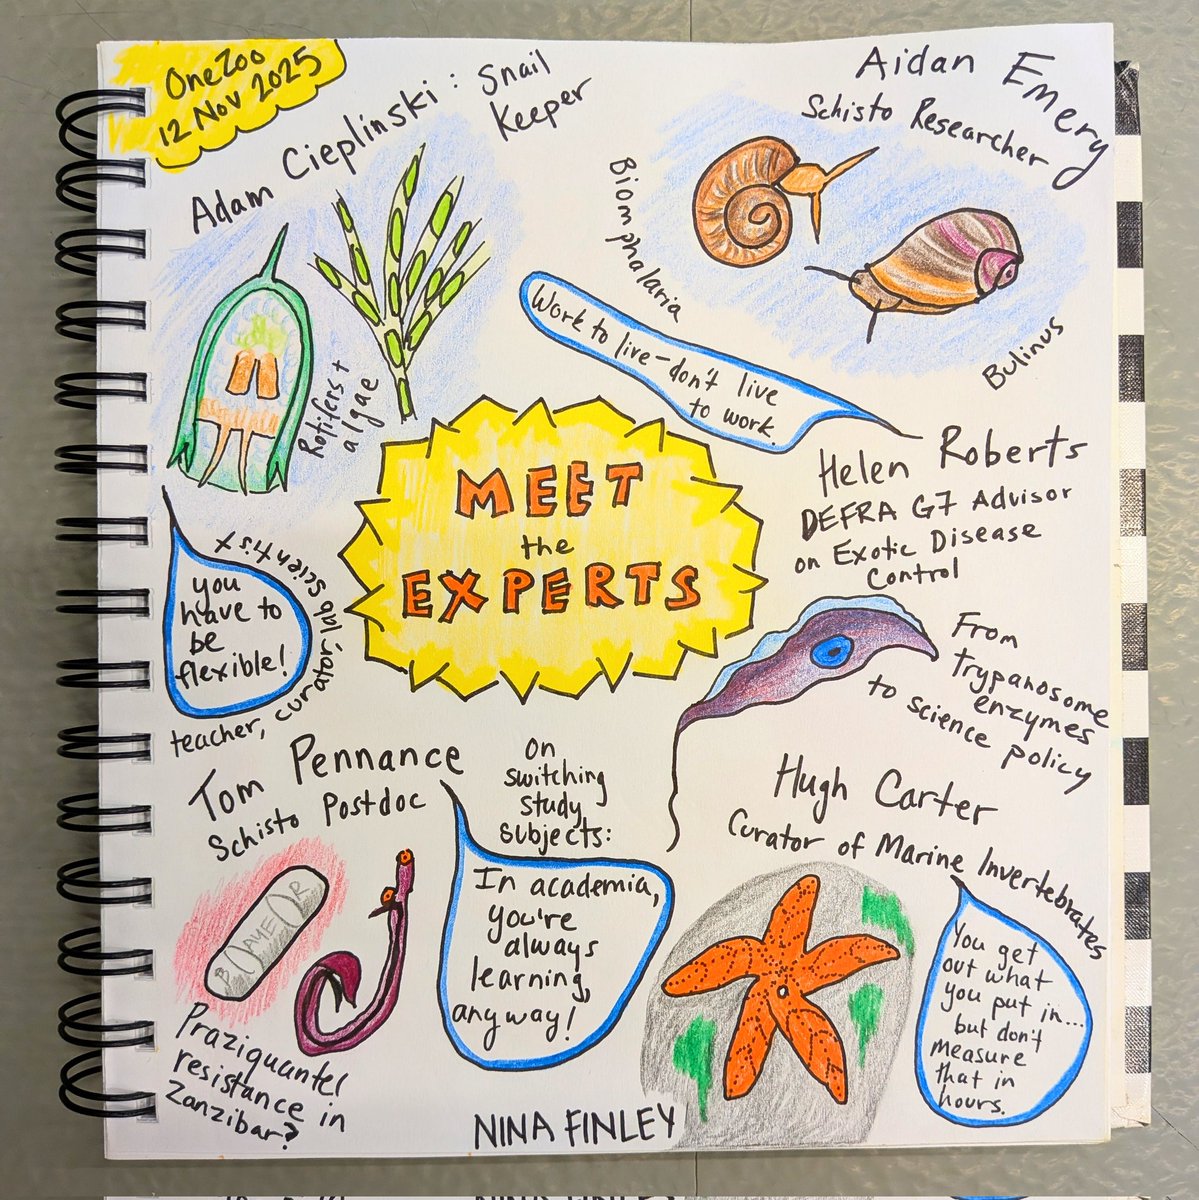 OneZoo
12 Nov 2025
Adam Cieplinski: Snail
Keeper
Rotifers +
algae
Aidan Emery
Schisto Researcher
Biomphalaria
Bulinus
Work to live - don't live
to work.
MEET
the
EXPERTS
Helen Roberts
DEFRA G7 Advisor
on Exotic Disease
Control
From
trypanosome
enzymes
to science policy
you
have to
be
flexible!
teacher, curator, lab scientist
Tom Pennance
Schisto Postdoc
BAYER
Praziquantel
resistance in
Zanzibar?
On
switching
study
subjects:
In academia,
you're
always
learning,
anyway!
Hugh Carter
Curator of Marine Invertebrates
You get
out what
you put in...
but don't
measure
that in
hours.
NINA FINLEY